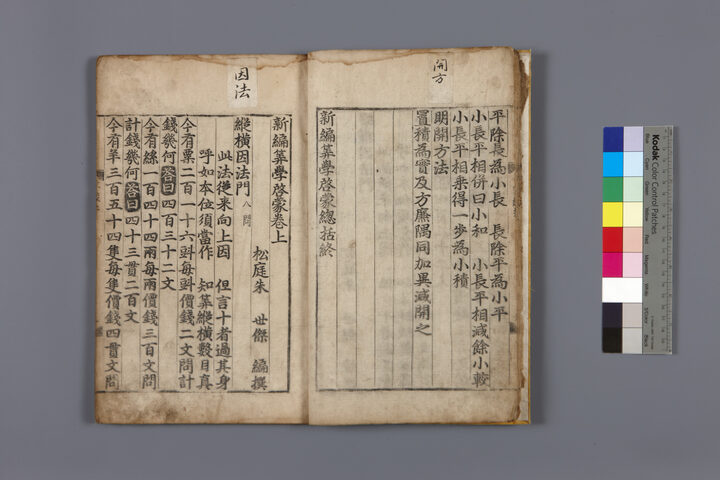 開方
平除長為小長 長除平為小平
小長平相併曰小和 小長平相減餘小較
小長平相乘得一步為小積
明開方法
置積為實及方廉隅同加異減開之
新編筭學啓蒙總括終
因法
新編筭學啓蒙卷上
松庭朱 世傑 編撰
縱橫因法門 八問
此法從來向上因 但言十者過其身
呼如本位須當作 知筭縱橫數目真
今有粟二百一十六㪷每㪷價錢二文問計
錢幾何答曰四百三十二文
今有絲一百四十四兩每兩價錢三百文問
計錢幾何答曰四十三貫二百文
今有羊三百五十四隻每隻價錢四貫文問
Kodak Color Control Patches
Blue
Cyan
Green
Yellow
Red
Magenta
White
3/Color
Black